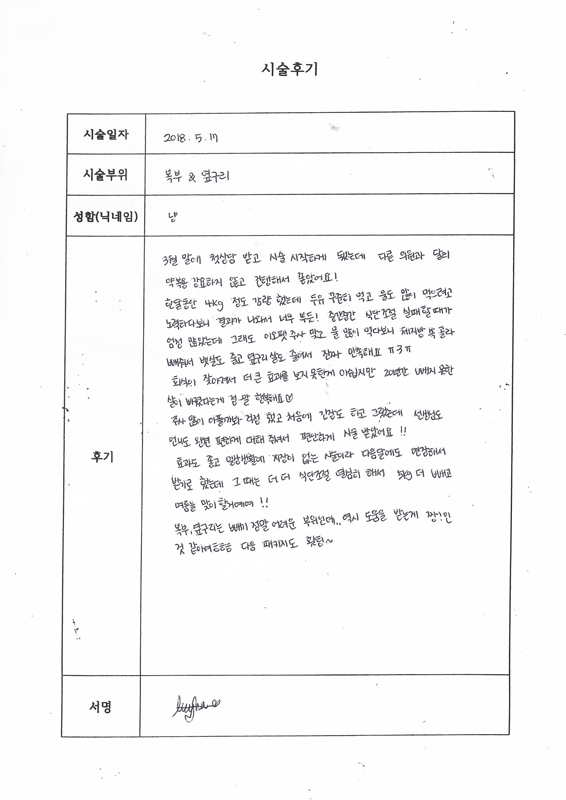 시술후기
시술일자 2018. 5. 17
시술부위 복부 & 옆구리
성함(닉네임) 냥
후기
3월 말에 첫상담 받고 시술 시작하게 됐는데 다른 의원과 달리
약복용 강요하지 않고 간단해서 좋았어요!
한달동안 4kg 정도 감량 했는데 두유 꾸준히 먹고 물도 많이 먹으려고
노력하다보니 결과가 나와서 너무 뿌듯! 중간중간 식단조절 실패할 때가
엄청 많았는데 그래도 이오펫 주사 맞고 물 많이 먹다보니 체지방 쏙 골라
빼줘서 뱃살도 줄고 옆구리살도 줄어서 진짜 만족해요 ㅠ3ㅠ
회식이 잦아져서 더 큰 효과를 보지 못한게 아쉽지만 20년간 빼지 못한
살이 빠졌다는게 정말 행복해요♡
주사 많이 아플까봐 걱정 했고 처음에 긴장도 타고 그랬는데 선생님도
언니도 완전 편하게 대해 주셔서 편안하게 시술 받았어요!!
효과도 좋고 일상생활에 지장이 없는 시술이라 다음달에도 연장해서
받기로 했는데 그 때는 더 더 식단조절 열심히 해서 5kg 더 빼고
여름을 맞이할거예여!!
복부, 옆구리는 빼기 정말 어려운 부위인데.. 역시 도움을 받는게 짱인
것 같아여ㅎㅎㅎ 다음 패키지도 홧팅~
서명